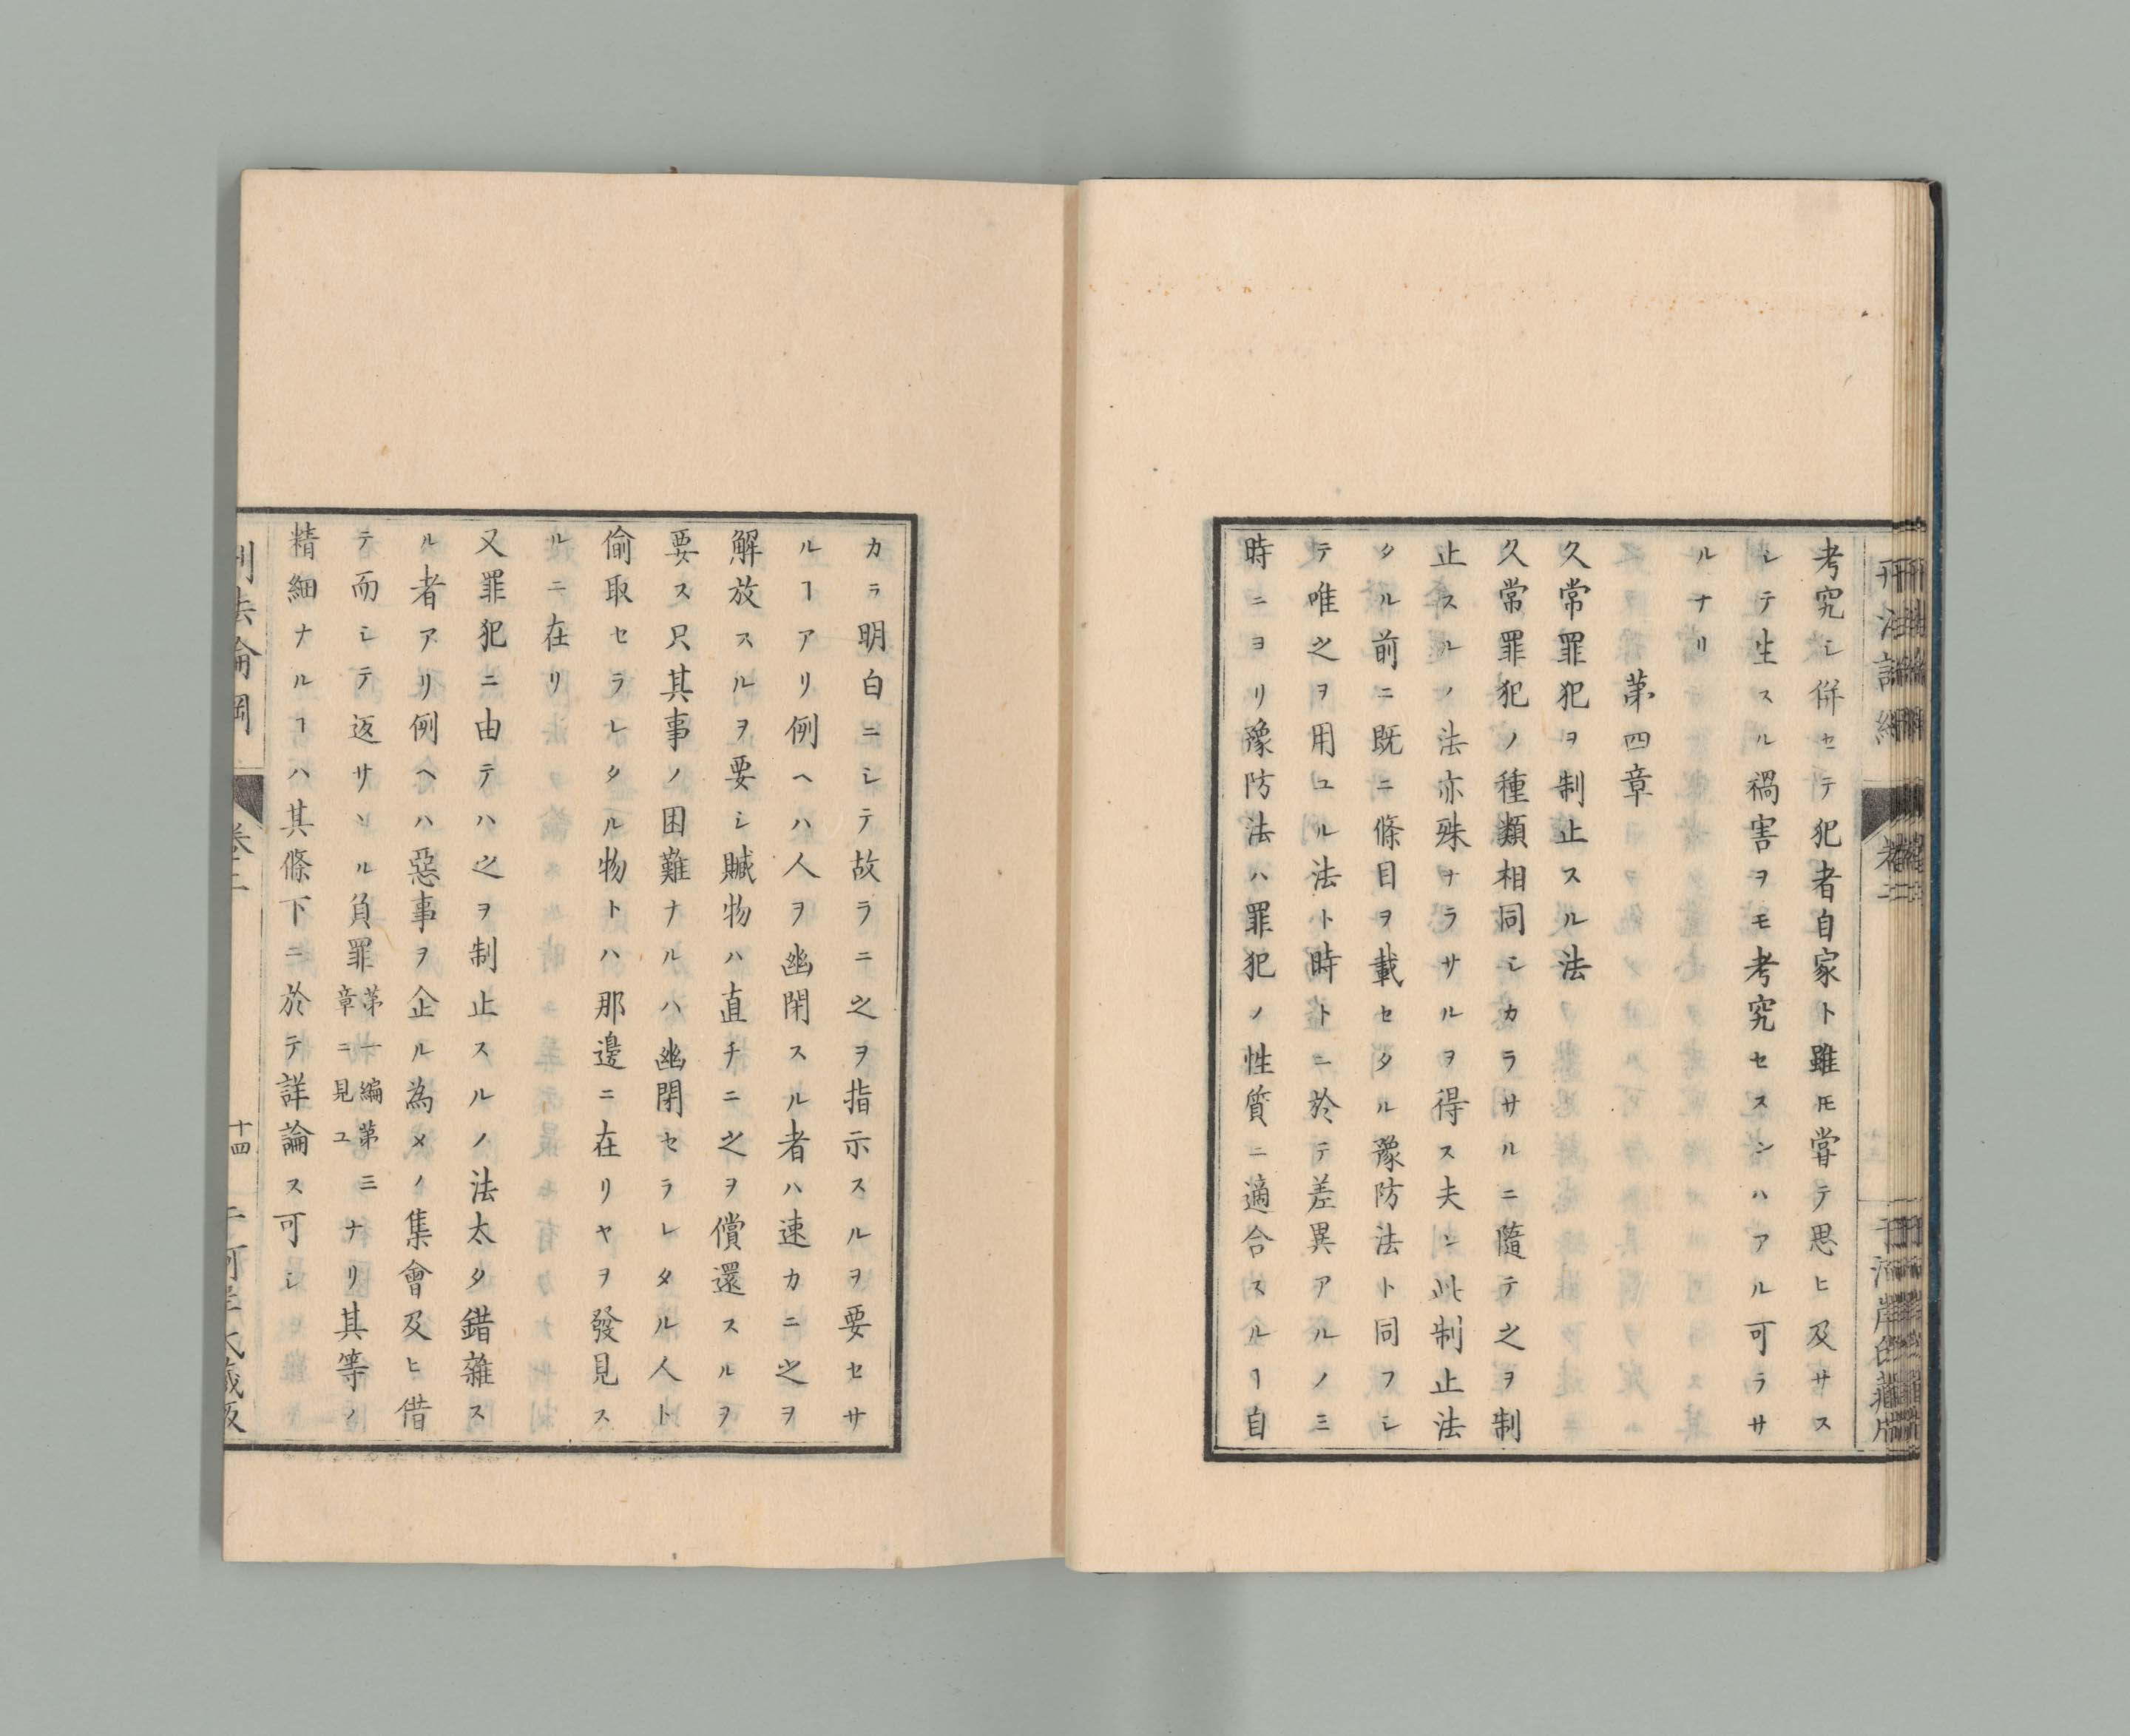 考究シ併セテ犯者自家ト雖𪜈甞テ思ヒ及サス
シテ生スル禍害ヲモ考究セスンハアル可ラサ
ルナリ
第四章
久常罪犯ヲ制止スル法
久常罪犯ノ種類相同シカラサルニ隨テ之ヲ制
止スルノ法亦殊ナラサルヲ得ス夫レ此制止法
タル前ニ既ニ條目ヲ載セタル豫防法ト同フシ
テ唯之ヲ用ユル法ト時トニ於テ差異アルノミ
時ニヨリ豫防法ハ罪犯ノ性質ニ適合スルヿ自
カラ明白ニシテ故ラニ之ヲ指示スルヲ要セサ
ルヿアリ例ヘハ人ヲ幽閉スル者ハ速カニ之ヲ
解放スルヲ要シ贓物ハ直チニ之ヲ償還スルヲ
要ス只其事ノ困難ナルハ幽閉セラレタル人ト
偷取セラレタル物トハ那邊ニ在リヤヲ發見ス
ルニ在リ
又罪犯ニ由テハ之ヲ制止スルノ法太タ錯雜ス
ル者アリ例ヘハ惡事ヲ企ル為メノ集會及ヒ借
テ而シテ返サヽル負罪第一編第三章ニ見ユナリ其等ノ
精細ナルヿハ其條下ニ於テ詳論ス可シ
刑法論綱
卷二
十四